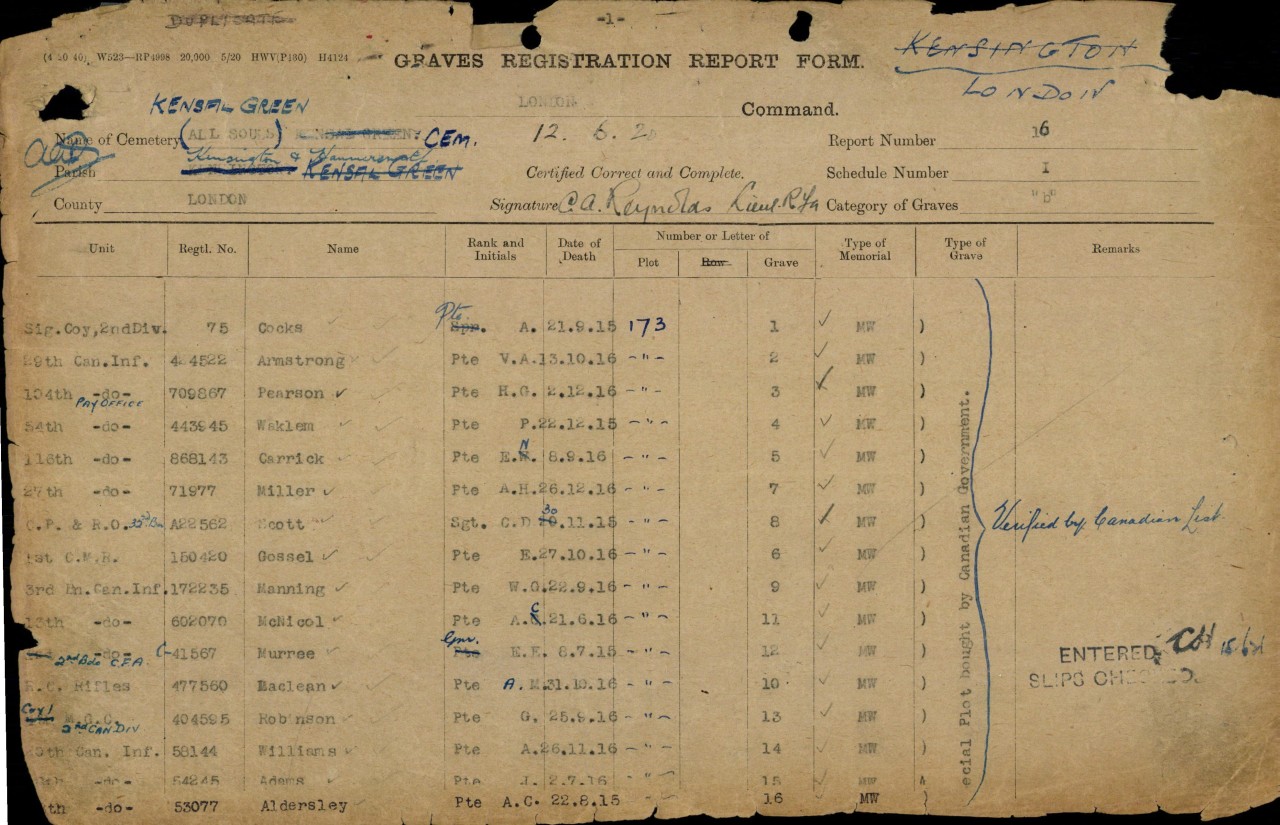 DUPLICATE
-1-
(4 20 40) W523—RP4998 20,000 5/20 HWV(P130) H4124
GRAVES REGISTRATION REPORT FORM.
KENSINGTON
LONDON
KENSAL GREEN
LONDON Command.
Name of Cemetery (ALL SOULS) KENSAL GREEN. CEM.
12. 6. 20
Report Number 16
Kensington &
Parish KENSAL GREEN
Certified Correct and Complete.
Schedule Number I
County LONDON
Signature C.A. Reynolds Lieut. Category of Graves "b"
Unit Regtl. No. Name Rank and Initials Date of Death Number or Letter of Type of Memorial Type of Grave Remarks
Plot Row Grave
Pte.
Sig.Coy,2ndDiv. 75 Cocks Spr. A. 21.9.15 173 1 MW )
29th Can.Inf. Armstrong Pte V.A. 13.10.16 -"- 2 MW )
104th -do- 709867 Pearson Pte H.G. 2.12.16 -"- 3 MW )
PAY OFFICE
54th -do- 443945 Waklem Pte P. 22.12.15 -"- 4 MW )
N
116th -do- 868143 Carrick Pte E. 8.9.16 -"- 5 MW )
27th -do- 71977 Miller Pte A.H. 26.12.16 -"- 7 MW )
30
C.P. & R.O. A22562 Scott Sgt. C.D .11.15 -"- 8 MW )
Verified by Canadian List.
1st C.M.R. 150420 Gossel Pte E. 27.10.16 -"- 6 MW )
3rd Bn.Can.Inf. 172235 Manning Pte W.G. 22.9.16 -"- 9 MW )
C
13th -do- 602070 McNicol Pte A. 21.6.16 -"- 11 MW )
Gnr.
41567 Murree Pte E.E. 8.7.15 -"- 12 MW )
2nd Bde C.F.A.
R.C. Rifles 477560 Maclean Pte A.M. 31.10.16 -"- 10 MW )
Coy
M.G.C. 404595 Robinson Pte G. 25.9.16 -"- 13 MW )
3RD CAN DIV
Can. Inf. 58144 Williams Pte A. 26.11.16 -"- 14 MW )
-do- 54245 Adams Pte J. 2.7.16 -"- 15 MW
th -do- 53077 Aldersley Pte A.C. 22.8.15 16 MW )
ecial Plot bought by Canadian Government.
ENTERED.
SLIPS CHECKED.